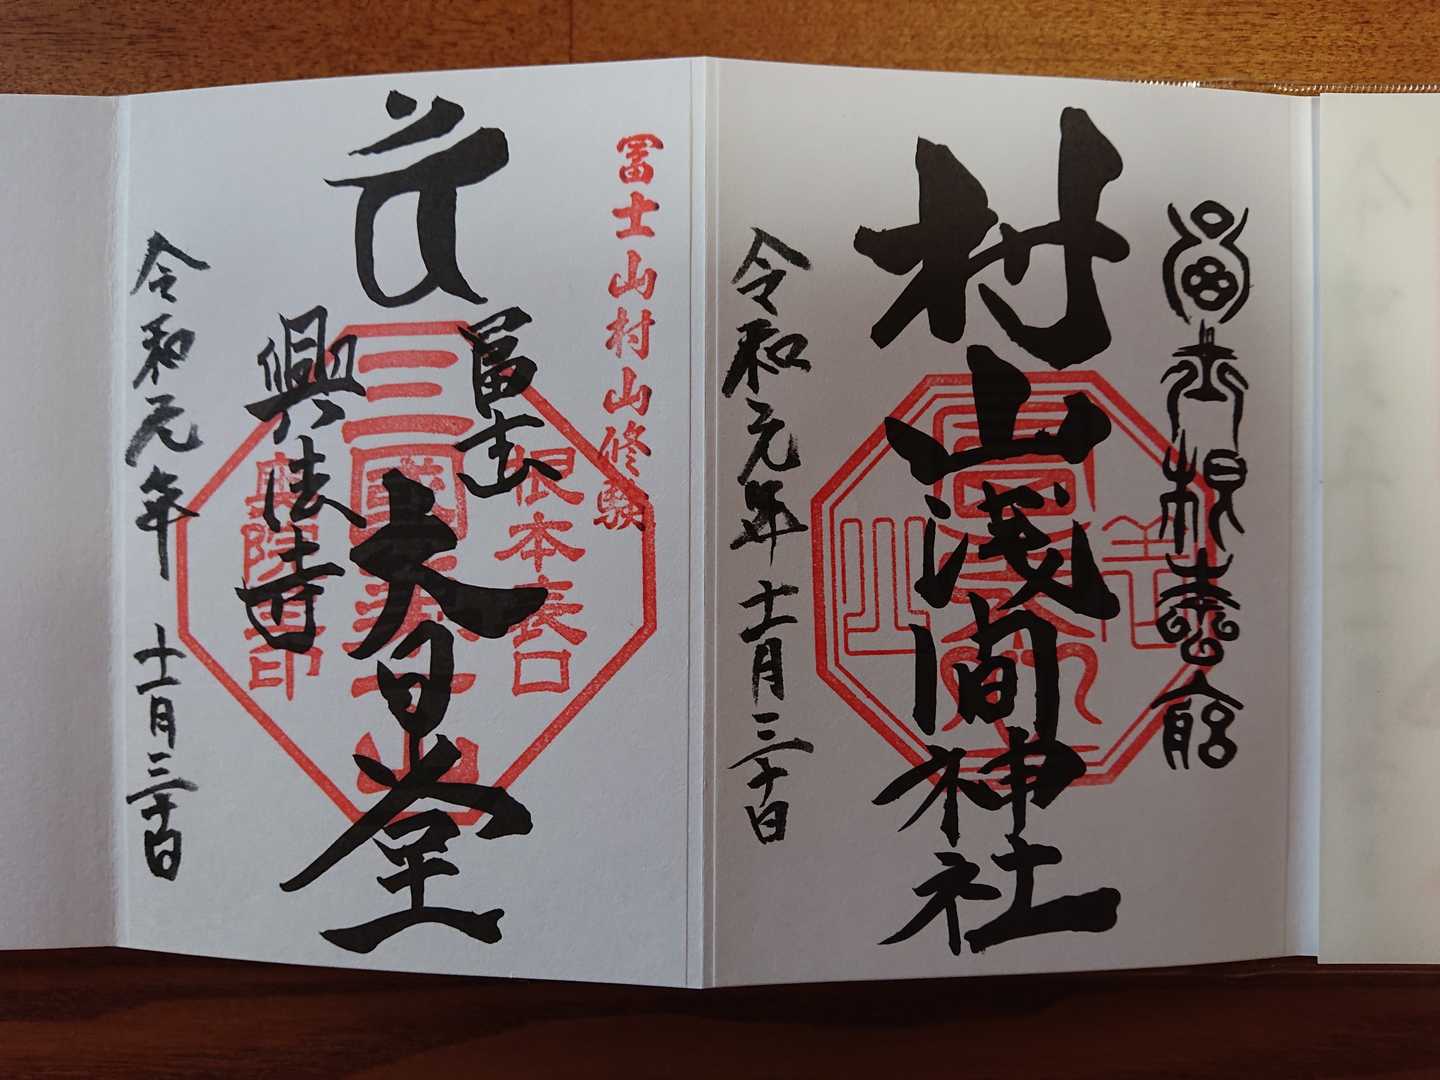 冨士根本宮
村山浅間神社
令和元年十一月三十日
冨士山村山修験
冨士
大日堂
興法寺
根本表口
三國第一山
奥院印
令和元年十一月三十日